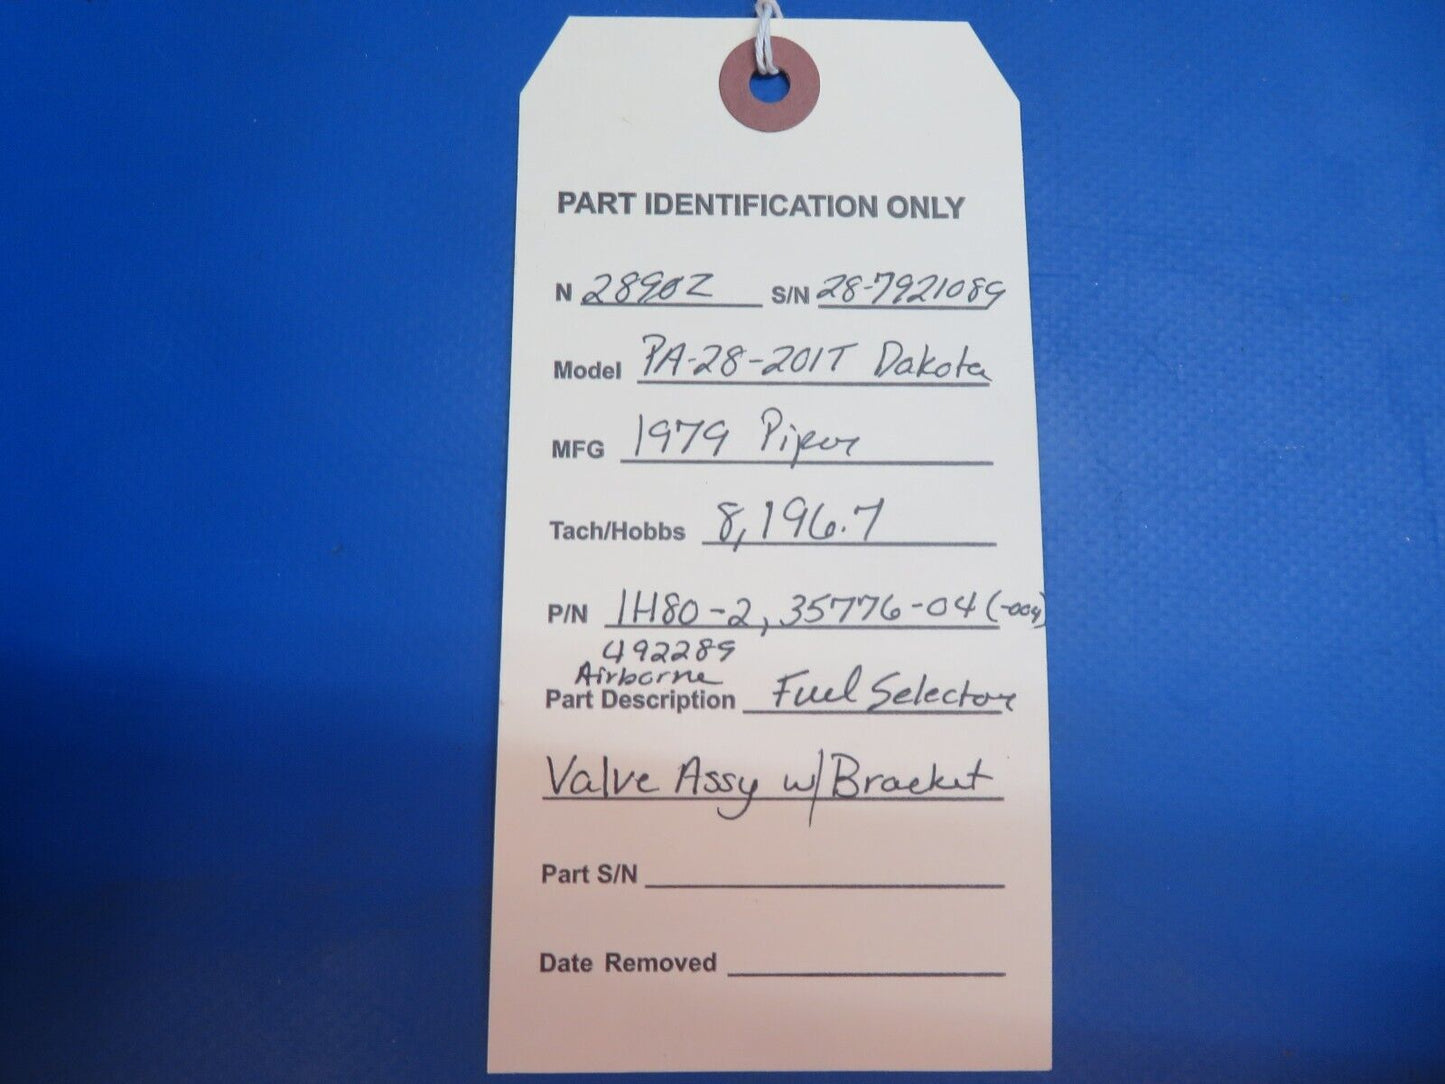 PART IDENTIFICATION ONLY
N 2890Z S/N 28-7921089
Model PA-28-201T Dakota
MFG 1979 Piper
Tach/Hobbs 8,196.7
P/N 1H80-2, 35776-04 (-004)
492289
Airborne
Part Description Fuel Selector
Valve Assy w/Bracket
Part S/N
Date Removed